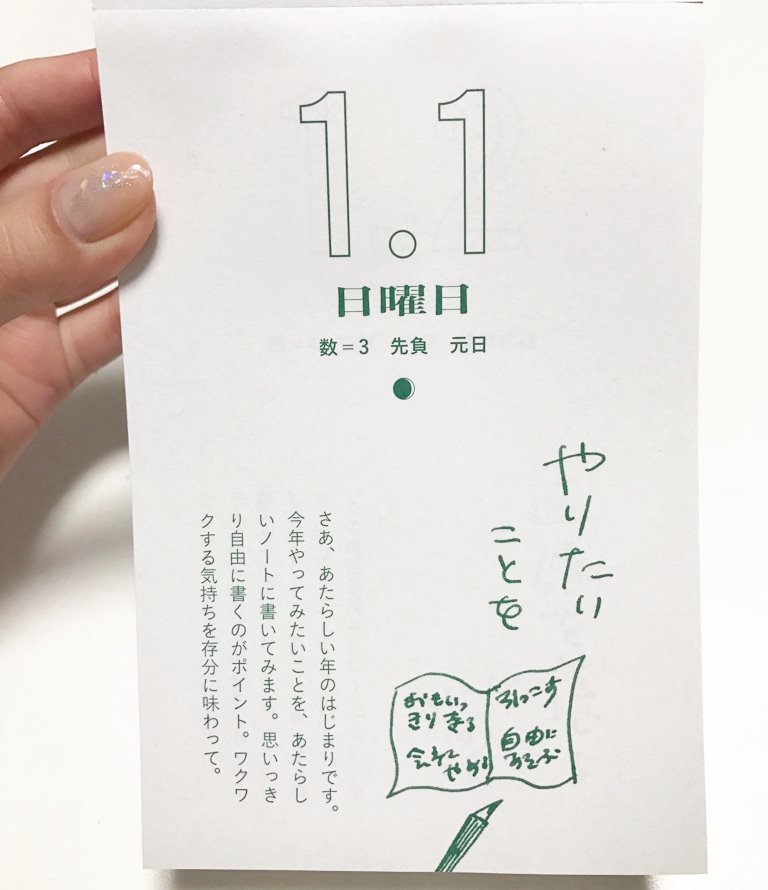 1.1
日曜日
数=3 先負 元日
やりたい
ことを
さあ、あたらしい年のはじまりです。
今年やってみたいことを、あたらし
いノートに書いてみます。思いっき
り自由に書くのがポイント。ワクワ
クする気持ちを存分に味わって。
おもいっ
きり
引っこす
自由に
あそぶ